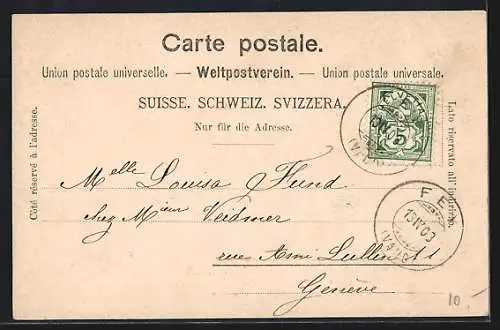 Carte postale.
Union postale universelle. — Weltpostverein. — Union postale universale.
SUISSE. SCHWEIZ. SVIZZERA.
Nur für die Adresse.
Côté réservé à l'adresse.
Lato riservato all'indirizzo.
HELVETIA
5
Melle Louisa Fund
chez Mr Weidmer
rue Ami Lullin 11
Genève
FE
10.